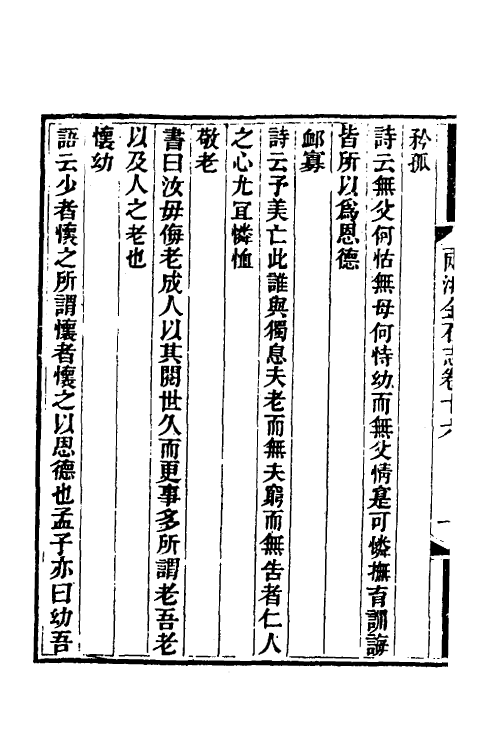 兩浙金石志卷十六
一
矜孤
詩云無父何怙無母何恃幼而無父情寔可憐撫育訓誨
皆所以爲恩德
卹寡
詩云予美亡此誰與獨息夫老而無夫窮而無告者仁人
之心尤宜憐恤
敬老
書曰汝毋侮老成人以其閱世久而更事多所謂老吾老
以及人之老也
懷幼
語云少者懷之所謂懷者懷之以恩德也孟子亦曰幼吾